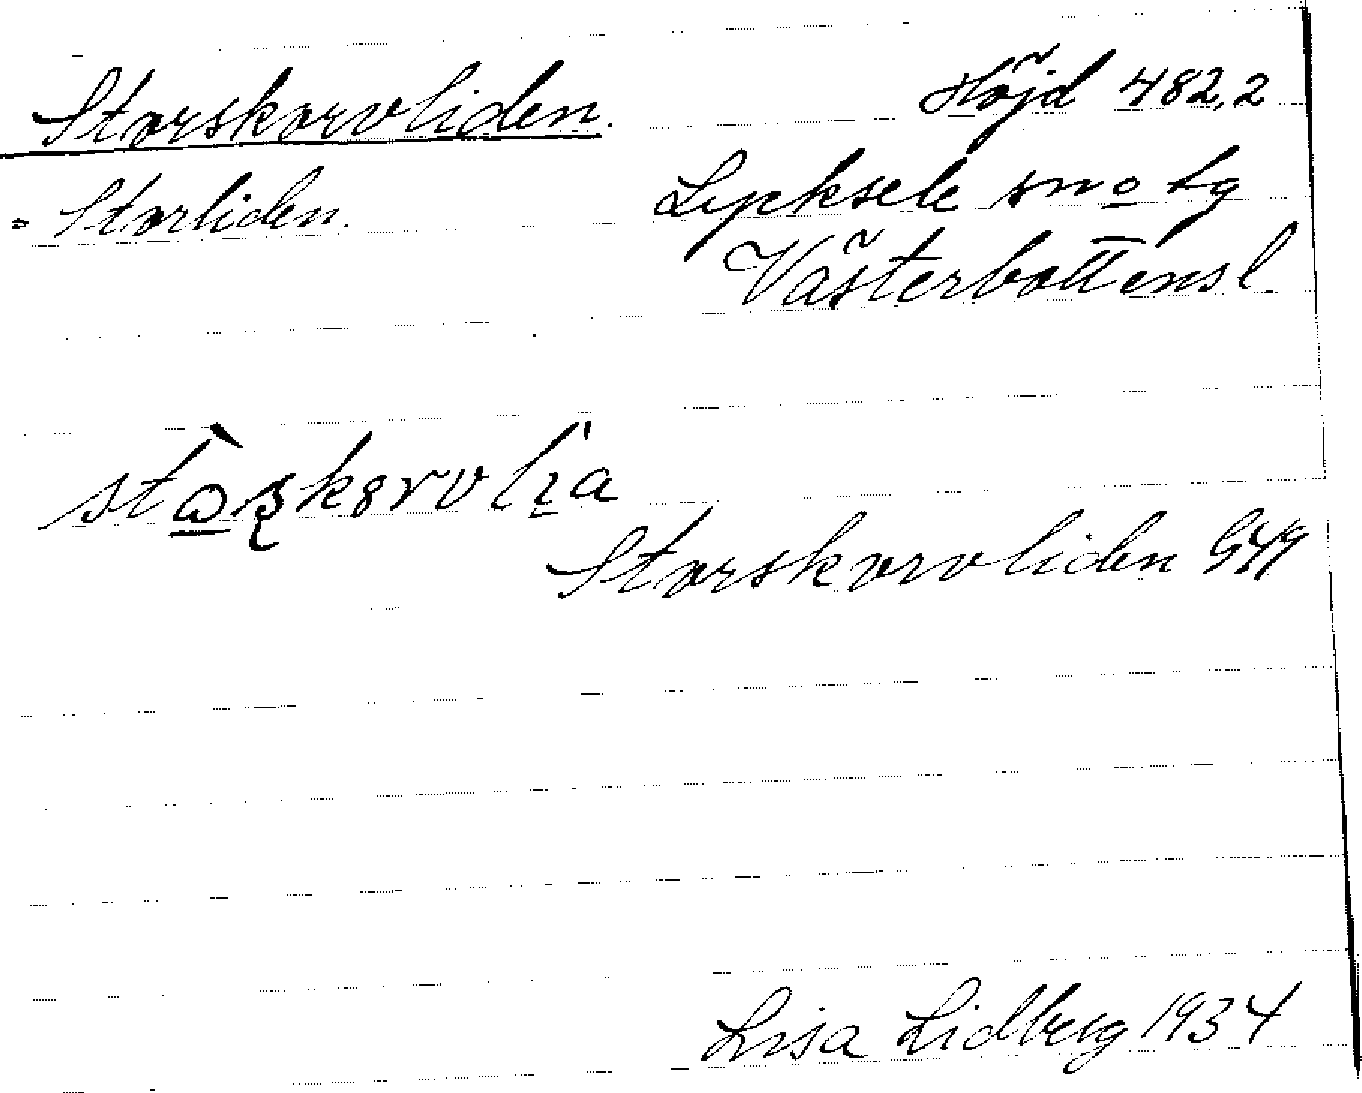 Storskorvliden. Höjd 482,2
= Storliden. Lycksele sn o tg
Västerbottens l
Storskorvliden
Lisa Lidberg 1934